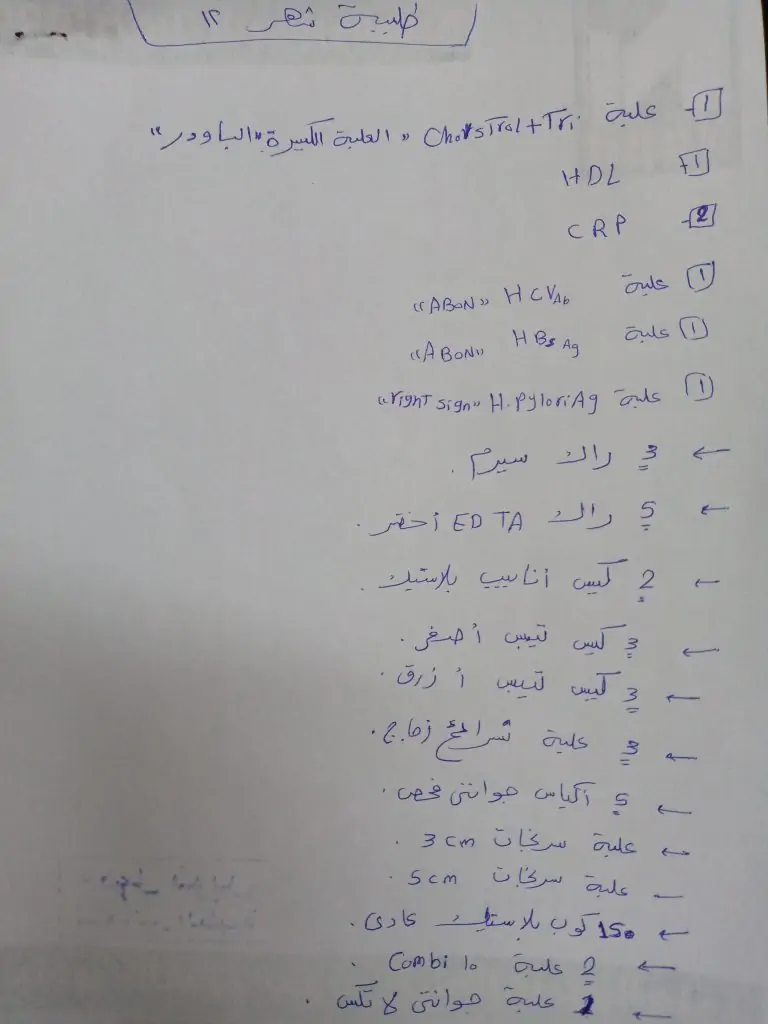 طلبية شهر ١٢
1 علبة Cholstrol + Tri "العلبة الكبيرة" "الباودر"
1 HDL
2 CRP
1 علبة HCV Ab "ABON"
1 علبة HBs Ag "ABON"
1 علبة H.Pylori Ag "right sign"
← 3 راك سيرم .
← 5 راك EDTA أخضر .
← 2 كيس أنابيب بلاستيك .
← 3 كيس تيبس أصفر .
← 3 كيس تيبس أزرق .
← 3 علبة شرائح زجاج .
← 5 أكياس جوانتى فحص .
← علبة سرنجات 3 cm .
← علبة سرنجات 5 cm .
← 150 كوب بلاستيك عادى .
← 2 علبة Combi 10 .
← 1 علبة جوانتى لاتكس .